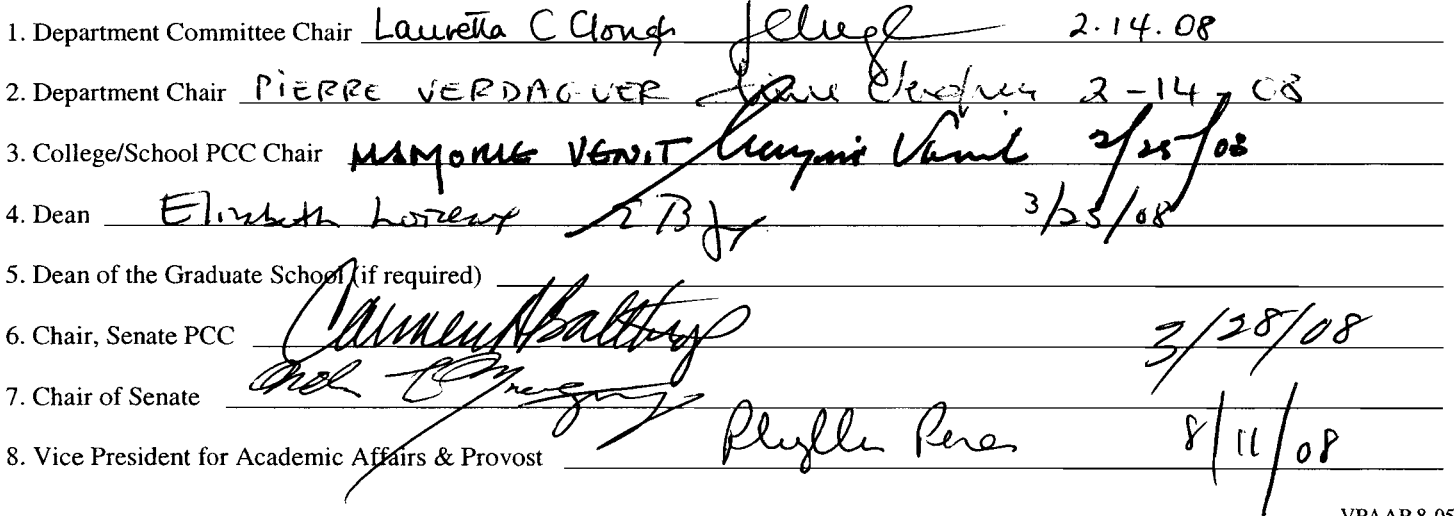 1. Department Committee Chair Lauretta C Clough 2.14.08
2. Department Chair PIERRE VERDAGUER 2-14-08
3. College/School PCC Chair MARJORIE VENIT 2/25/08
4. Dean Elizabeth 3/25/08
5. Dean of the Graduate School (if required)
6. Chair, Senate PCC Carmen Balthrop 3/28/08
7. Chair of Senate
8. Vice President for Academic Affairs & Provost Phyllis Peres 8/11/08
VPAAP 8-05